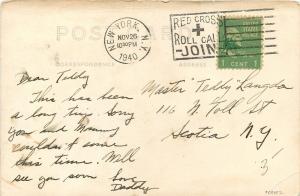 POST CARD
NEW YORK, N.Y.
NOV 26
10 PM
1940
RED CROSS
ROLL CALL
JOIN
1 CENT 1
CORRESPONDENCE
ADDRESS
Dear Teddy
This has been
a long trip. Sorry
you and Mommy
couldn't come
this time. Will
see you soon Love
Daddy
Master "Teddy" Langdon
116 N. Toll St
Scotia N.Y.